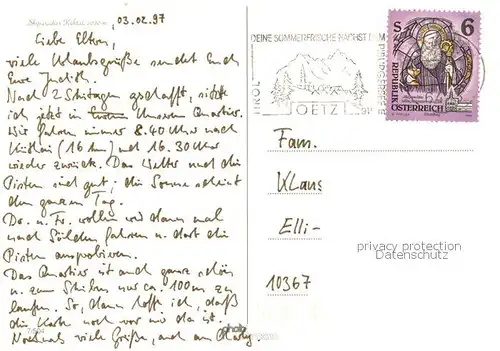 Skiparadies Kühtai 2020 m
03.02.97
Liebe Eltern,
viele Urlaubsgrüße sendet Euch
Eure Judith.
Nach 2 Skitagen geschafft, sitze
ich jetzt in unserem Quartier.
Wir fahren immer 8.40 Uhr nach
Kühtai (16 km) und 16.30 Uhr
wieder zurück. Das Wetter und die
Pisten sind gut, die Sonne scheint
den ganzen Tag.
Do. u. Fr. wollen wir dann mal
nach Sölden fahren u. dort die
Pisten ausprobieren.
Das Quartier ist auch ganz schön
u. zum Skibus nur ca. 100m zu
laufen. So, dann hoffe ich, daß
die Karte noch vor mir da ist.
Nochmals viele Grüße, auch an
DEINE SOMMERFRISCHE NÄCHST DEM
TIROL
OETZ
S 6
REPUBLIK
ÖSTERREICH
Fam.
Klaus
Elli-
10367
privacy protection
Datenschutz